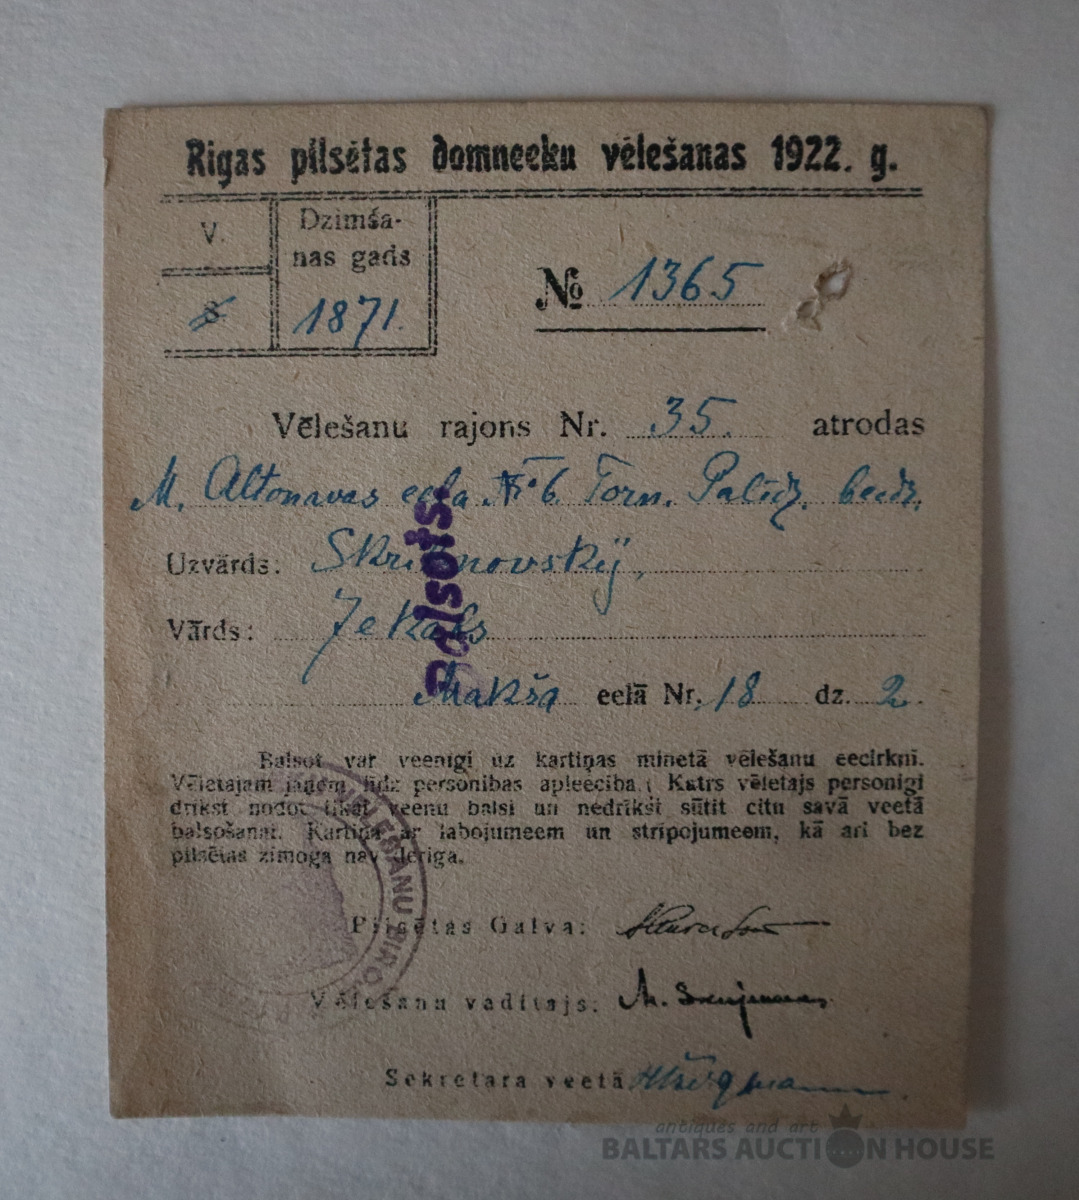 Rigas pilsētas domneeku vēlešanas 1922. g.
V.
Dzimša-
nas gads
1871.
№ 1365
Vēlešanu rajons Nr. 35. atrodas
M. Altonavas eela № 6 Torn. Palīdz. beedr.
Uzvārds:
Vārds: Jekabs
Balsots
eelā Nr. 18 dz. 2.
Balsot var veenigi uz kartiņas minetā vēlešanu eecirkni.
Vēletajam jaņem līdz personibas apleeciba. Katrs vēletajs personigi
drikst nodot tikai veenu balsi un nedrikst sūtit citu savā veetā
balsošanai. Kartiņa ar labojumeem un stripojumeem, kā ari bez
pilsētas zimoga nav deriga.
Pilsētas Galva:
Vēlešanu vaditajs: M.
Sekretara veetā
antiques and art
BALTARS AUCTION HOUSE